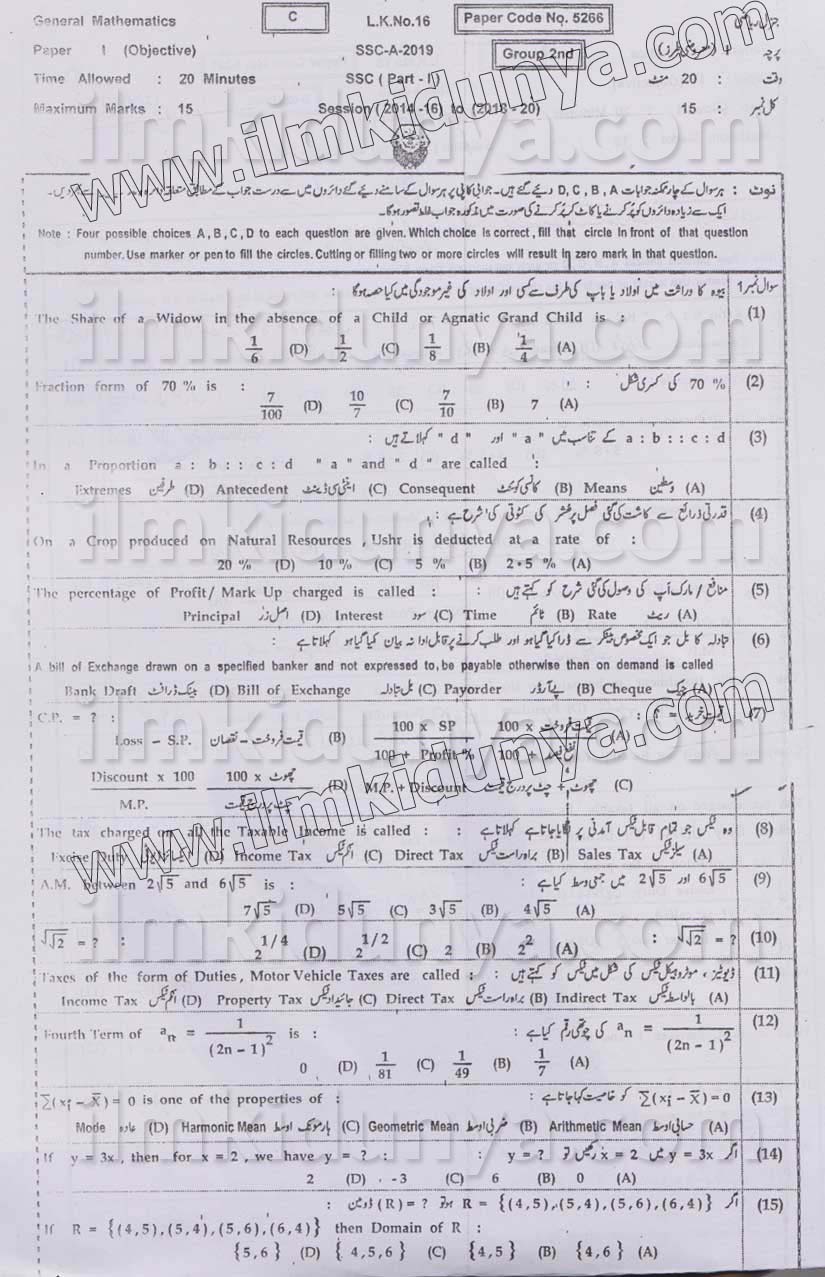 General Mathematics C L.K.No.16 Paper Code No. 5266 جنرل ریاضی
Paper I (Objective) SSC-A-2019 Group 2nd پرچہ I (معروضی طرز)
Time Allowed : 20 Minutes SSC (Part - II) وقت : 20 منٹ
Maximum Marks : 15 Session (2014 -16) to (2018 - 20) کل نمبر : 15
www.ilmkidunya.com
نوٹ : ہر سوال کے چار ممکنہ جوابات D, C, B, A دیے گئے ہیں۔ جوابی کاپی پر ہر سوال کے سامنے دیے گئے دائروں میں سے درست جواب کے مطابق متعلقہ دیں۔
ایک سے زیادہ دائروں کو پُر کرنے یا کاٹ کر پُر کرنے کی صورت میں مذکورہ جواب غلط تصور ہو گا۔
Note : Four possible choices A, B, C, D to each question are given. Which choice is correct, fill that circle in front of that question
number. Use marker or pen to fill the circles. Cutting or filling two or more circles will result in zero mark in that question.
سوال نمبر 1 بیوہ کا وراثت میں اولاد یا باپ کی طرف سے کسی اور اولاد کی غیر موجودگی میں کیا حصہ ہو گا :
The Share of a Widow in the absence of a Child or Agnatic Grand Child is : (1)
1/6 (D) 1/2 (C) 1/8 (B) 1/4 (A)
Fraction form of 70 % is : 70 % کی کسری شکل : (2)
7/100 (D) 10/7 (C) 7/10 (B) 7 (A)
a : b : : c : d کے تناسب میں " a " اور " d " کہلاتے ہیں : (3)
In a Proportion a : b : : c : d " a " and " d " are called :
Extremes طرفین (D) Antecedent اینٹی سی ڈینٹ (C) Consequent کانسی کوئنٹ (B) Means وسطین (A)
قدرتی ذرائع سے کاشت کی گئی فصل پر عشر کی کٹوتی کی شرح ہے : (4)
On a Crop produced on Natural Resources , Ushr is deducted at a rate of :
20 % (D) 10 % (C) 5 % (B) 2·5 % (A)
The percentage of Profit/ Mark Up charged is called : منافع / مارک اپ کی وصول کی گئی شرح کو کہتے ہیں : (5)
Principal اصل زر (D) Interest سود (C) Time ٹائم (B) Rate ریٹ (A)
تبادلہ کا بل جو ایک مخصوص بینکر سے ڈرا کیا گیا ہو اور طلب کرنے پر قابل ادا نہ بیان کیا گیا ہو کہلاتا ہے : (6)
A bill of Exchange drawn on a specified banker and not expressed to, be payable otherwise then on demand is called
Bank Draft بینک ڈرافٹ (D) Bill of Exchange بل تبادلہ (C) Payorder پے آرڈر (B) Cheque چیک (A)
C.P. = ? : قیمت خرید = ? : (7)
Loss – S.P. قیمت فروخت – نقصان (B) 100 x SP / 100 + Profit % 100 x قیمت فروخت / 100 + نفع فیصد (A)
Discount x 100 / M.P. 100 x چھوٹ / (D) M.P. + Discount چھوٹ + (C)
www.ilmkidunya.com
The tax charged on all the Taxable Income is called : وہ ٹیکس جو تمام قابل ٹیکس آمدنی پر لگایا جاتا ہے کہلاتا ہے : (8)
Excise Duty (D) Income Tax انکم ٹیکس (C) Direct Tax براہ راست ٹیکس (B) Sales Tax سیلز ٹیکس (A)
A.M. between 2√5 and 6√5 is : 6√5 اور 2√5 میں حسابی وسط کیا ہے : (9)
7√5 (D) 5√5 (C) 3√5 (B) 4√5 (A)
√√2 = ? : √√2 = ? : (10)
2^1/4 (D) 2^1/2 (C) 2 (B) 2^2 (A)
Taxes of the form of Duties, Motor Vehicle Taxes are called : ڈیوٹیز ، موٹر وہیکل ٹیکس کی شکل میں ٹیکس کو کہتے ہیں : (11)
Income Tax انکم ٹیکس (D) Property Tax جائیداد ٹیکس (C) Direct Tax براہ راست ٹیکس (B) Indirect Tax بالواسطہ ٹیکس (A)
Fourth Term of aₙ = 1/(2n – 1)² is : aₙ = 1/(2n – 1)² کی چوتھی رقم کیا ہے : (12)
0 (D) 1/81 (C) 1/49 (B) 1/7 (A)
∑(xi – X̄) = 0 is one of the properties of : ∑(xi – X̄) = 0 کو خاصیت کہا جاتا ہے : (13)
Mode عادہ (D) Harmonic Mean ہارمونک اوسط (C) Geometric Mean ضربی اوسط (B) Arithmetic Mean حسابی اوسط (A)
If y = 3x, then for x = 2, we have y = ? : اگر y = 3x میں x = 2 رکھیں تو y = ? : (14)
2 (D) -3 (C) 6 (B) 0 (A)
اگر R = {(4,5),(5,4),(5,6),(6,4)} ہو تو ? = (R) ڈومین : (15)
If R = {(4,5),(5,4),(5,6),(6,4)} then Domain of R :
{5,6} (D) {4,5,6} (C) {4,5} (B) {4,6} (A)